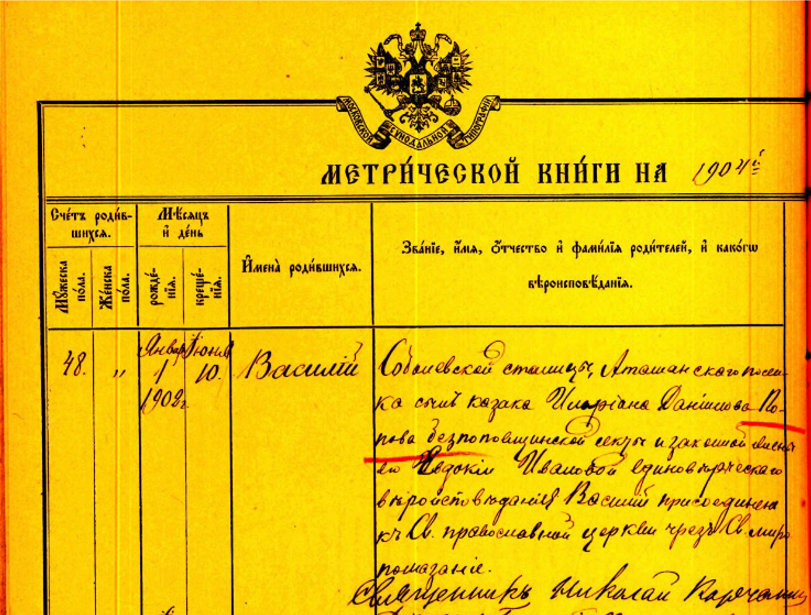 МОСКОВСКОЙ СѴНОДАЛЬНОЙ ТИПОГРАФІИ
МЕТРИ́ЧЕСКОЙ КНИ́ГИ НА 1904й
Сче́тъ роди́в-
шихся.
Мѣсяцъ
и́ де́нь
Имена̀ роди́вшихся.
Зва́ніе, и́мя, о́тчество и́ фами́лія роди́телей, и́ како́гѡ
вѣроисповѣ́данія.
Мꙋ́жеска
по́ла.
Же́нска
по́ла.
рожде́-
нія.
креще́-
нія.
48. „ Январ Іюня Василій
1 10.
1902г
Соболевской станицы, Аташанского посел-
ка сынъ казака Иларіона Даніилова По-
пова безпоповщинской секты и законной жены
его Евдокіи Ивановой единовѣрческаго
вѣроисповѣданія Василій присоединен
къ Св. православной церкви чрезъ Св. миро-
помазаніе.
Священникъ Николай